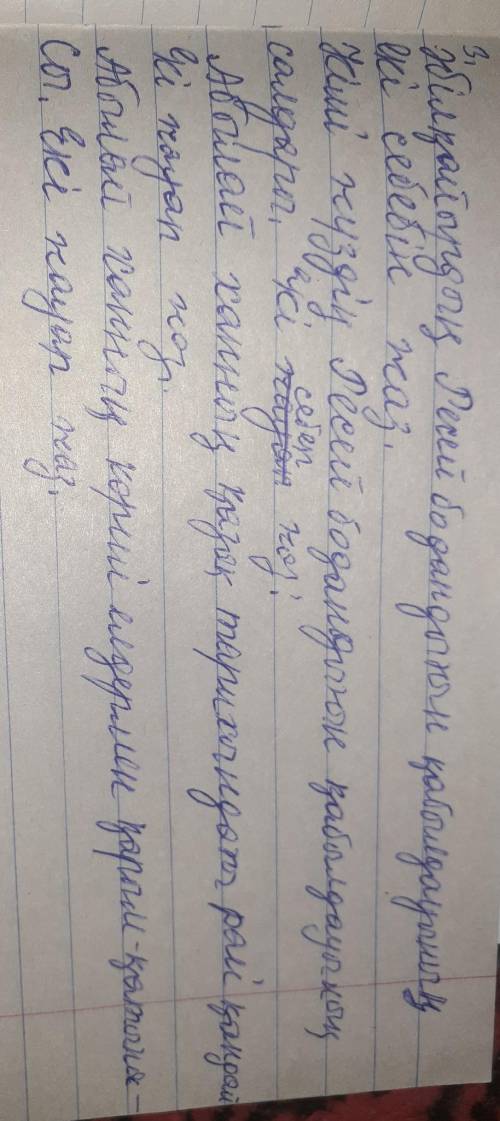 3.
Әбілқайырдың Ресей бодандығын қабылдауының
екі себебін жаз.
Кіші жүздің Ресей бодандығын қабылдауының
салдары, екі себеп жаз.
Абылай ханның қазақ тарихындағы рөлі қандай
Екі пауап жаз.
Абылай ханның көрші елдермен қарым-қатына-
сы. Екі пауап жаз.